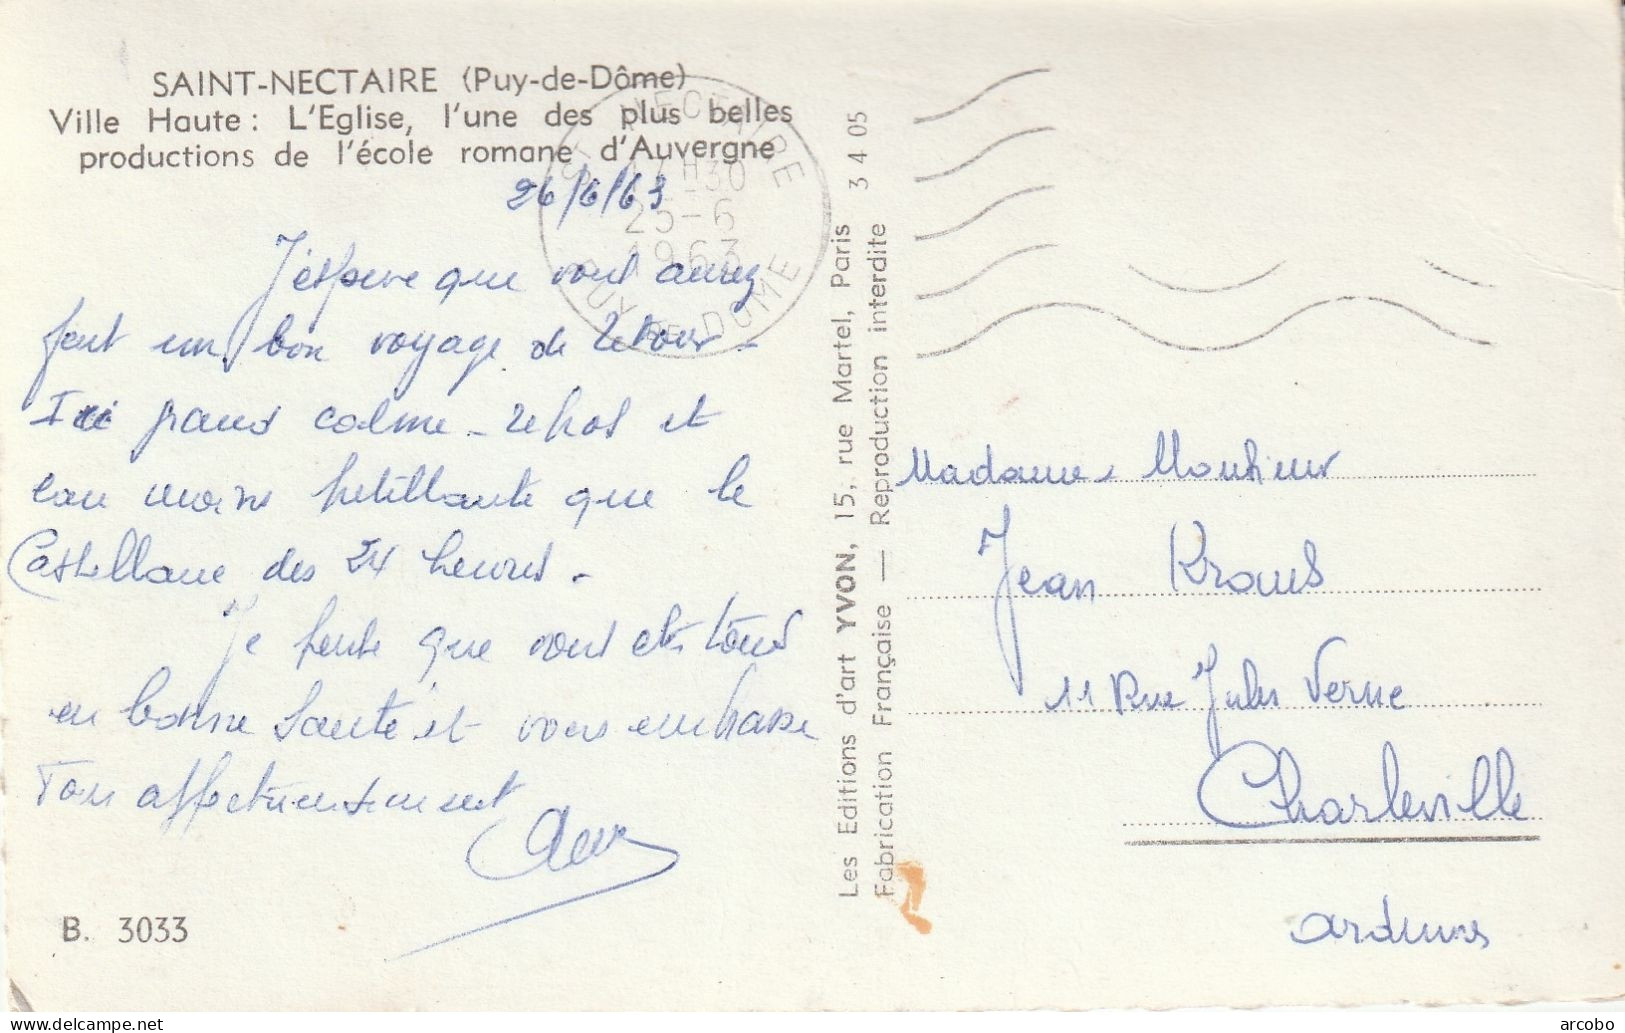 SAINT-NECTAIRE (Puy-de-Dôme)
Ville Haute : L'Eglise, l'une des plus belles
productions de l'école romane d'Auvergne
26/6/63
J'espere que vous aurez
fait un bon voyage de retour -
Ici grand calme - repos et
eau moins petillante que le
Castellane des 24 heures -
Je pense que vous etes tous
en bonne santé et vous embrasse
Tous affectueusement
B. 3033
ST NECTAIRE
17H30
25-6
1963
PUY DE DOME
Les Editions d'art YVON, 15, rue Martel, Paris
Fabrication Française — Reproduction interdite
3 4 05
Madame, Monsieur
Jean Kraus
11 Rue Jules Verne
Charleville
Ardennes
delcampe.net
arcobo